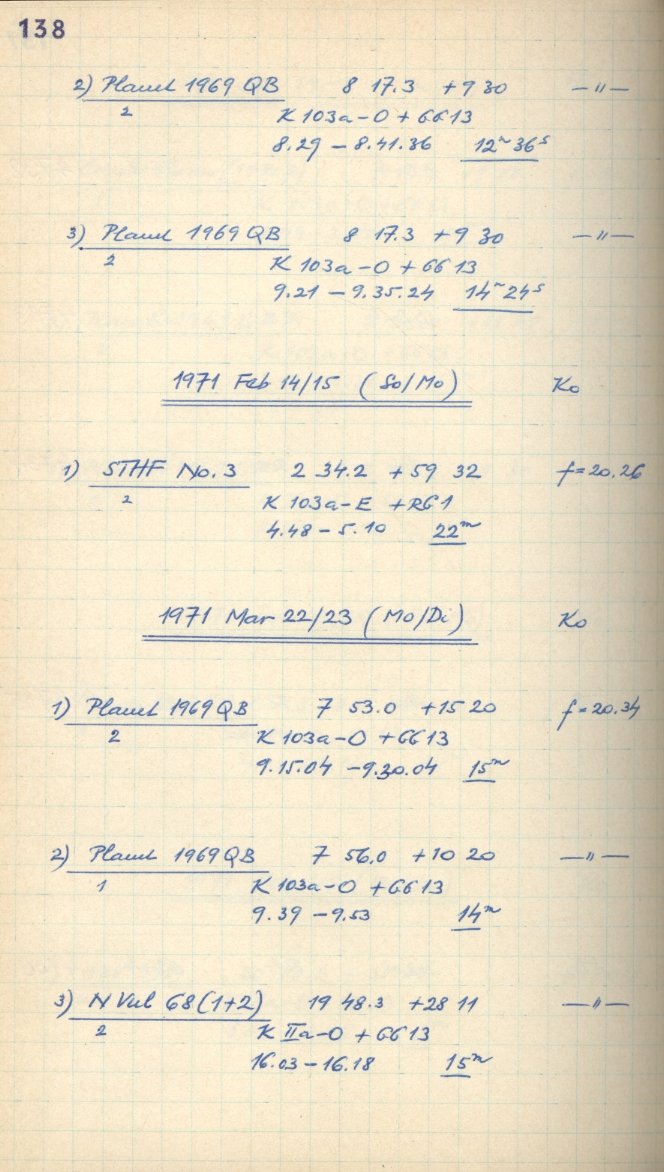 138
2) Planet 1969 QB 8 17.3 +9 30 —"—
2 K 103a-O + GG13
8.29 – 8.41.36 12m 36s
3) Planet 1969 QB 8 17.3 +9 30 —"—
2 K 103a-O + GG13
9.21 – 9.35.24 14m 24s
1971 Feb 14/15 (So/Mo) Ko
1) STHF No. 3 2 34.2 +59 32 f=20.26
2 K 103a-E +RG1
4.48 – 5.10 22m
1971 Mar 22/23 (Mo/Di) Ko
1) Planet 1969 QB 7 53.0 +15 20 f=20.34
2 K 103a-O +GG13
9.15.04 – 9.30.04 15m
2) Planet 1969 QB 7 56.0 +10 20 —"—
1 K 103a-O +GG13
9.39 – 9.53 14m
3) N Vul 68 (1+2) 19 48.3 +28 11 —"—
2 K IIa-O + GG13
16.03 – 16.18 15m